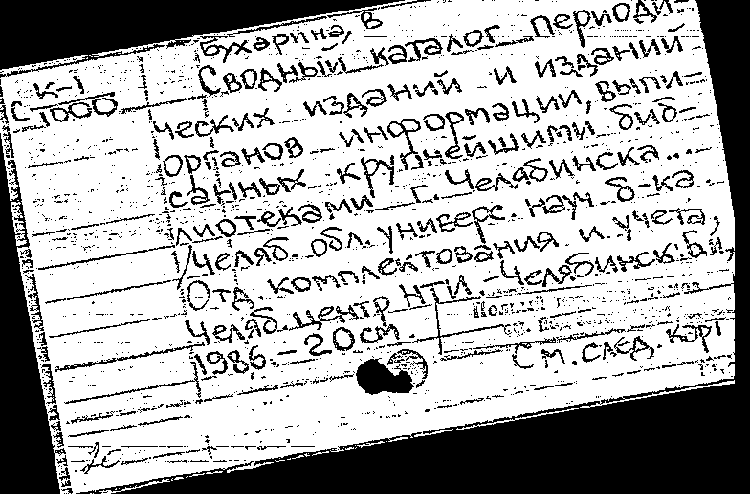 Бухарина, В
К-1
С 1000
Сводный каталог периоди-
ческих изданий и изданий
органов информации, выпи-
санных крупнейшими биб-
лиотеками г. Челябинска...
/Челяб. обл. универс. науч. б-ка.
Отд. комплектования и учета,
Челяб. центр НТИ.-Челябинск: Б.и,
1986.-20см.
См. след. карт
2с